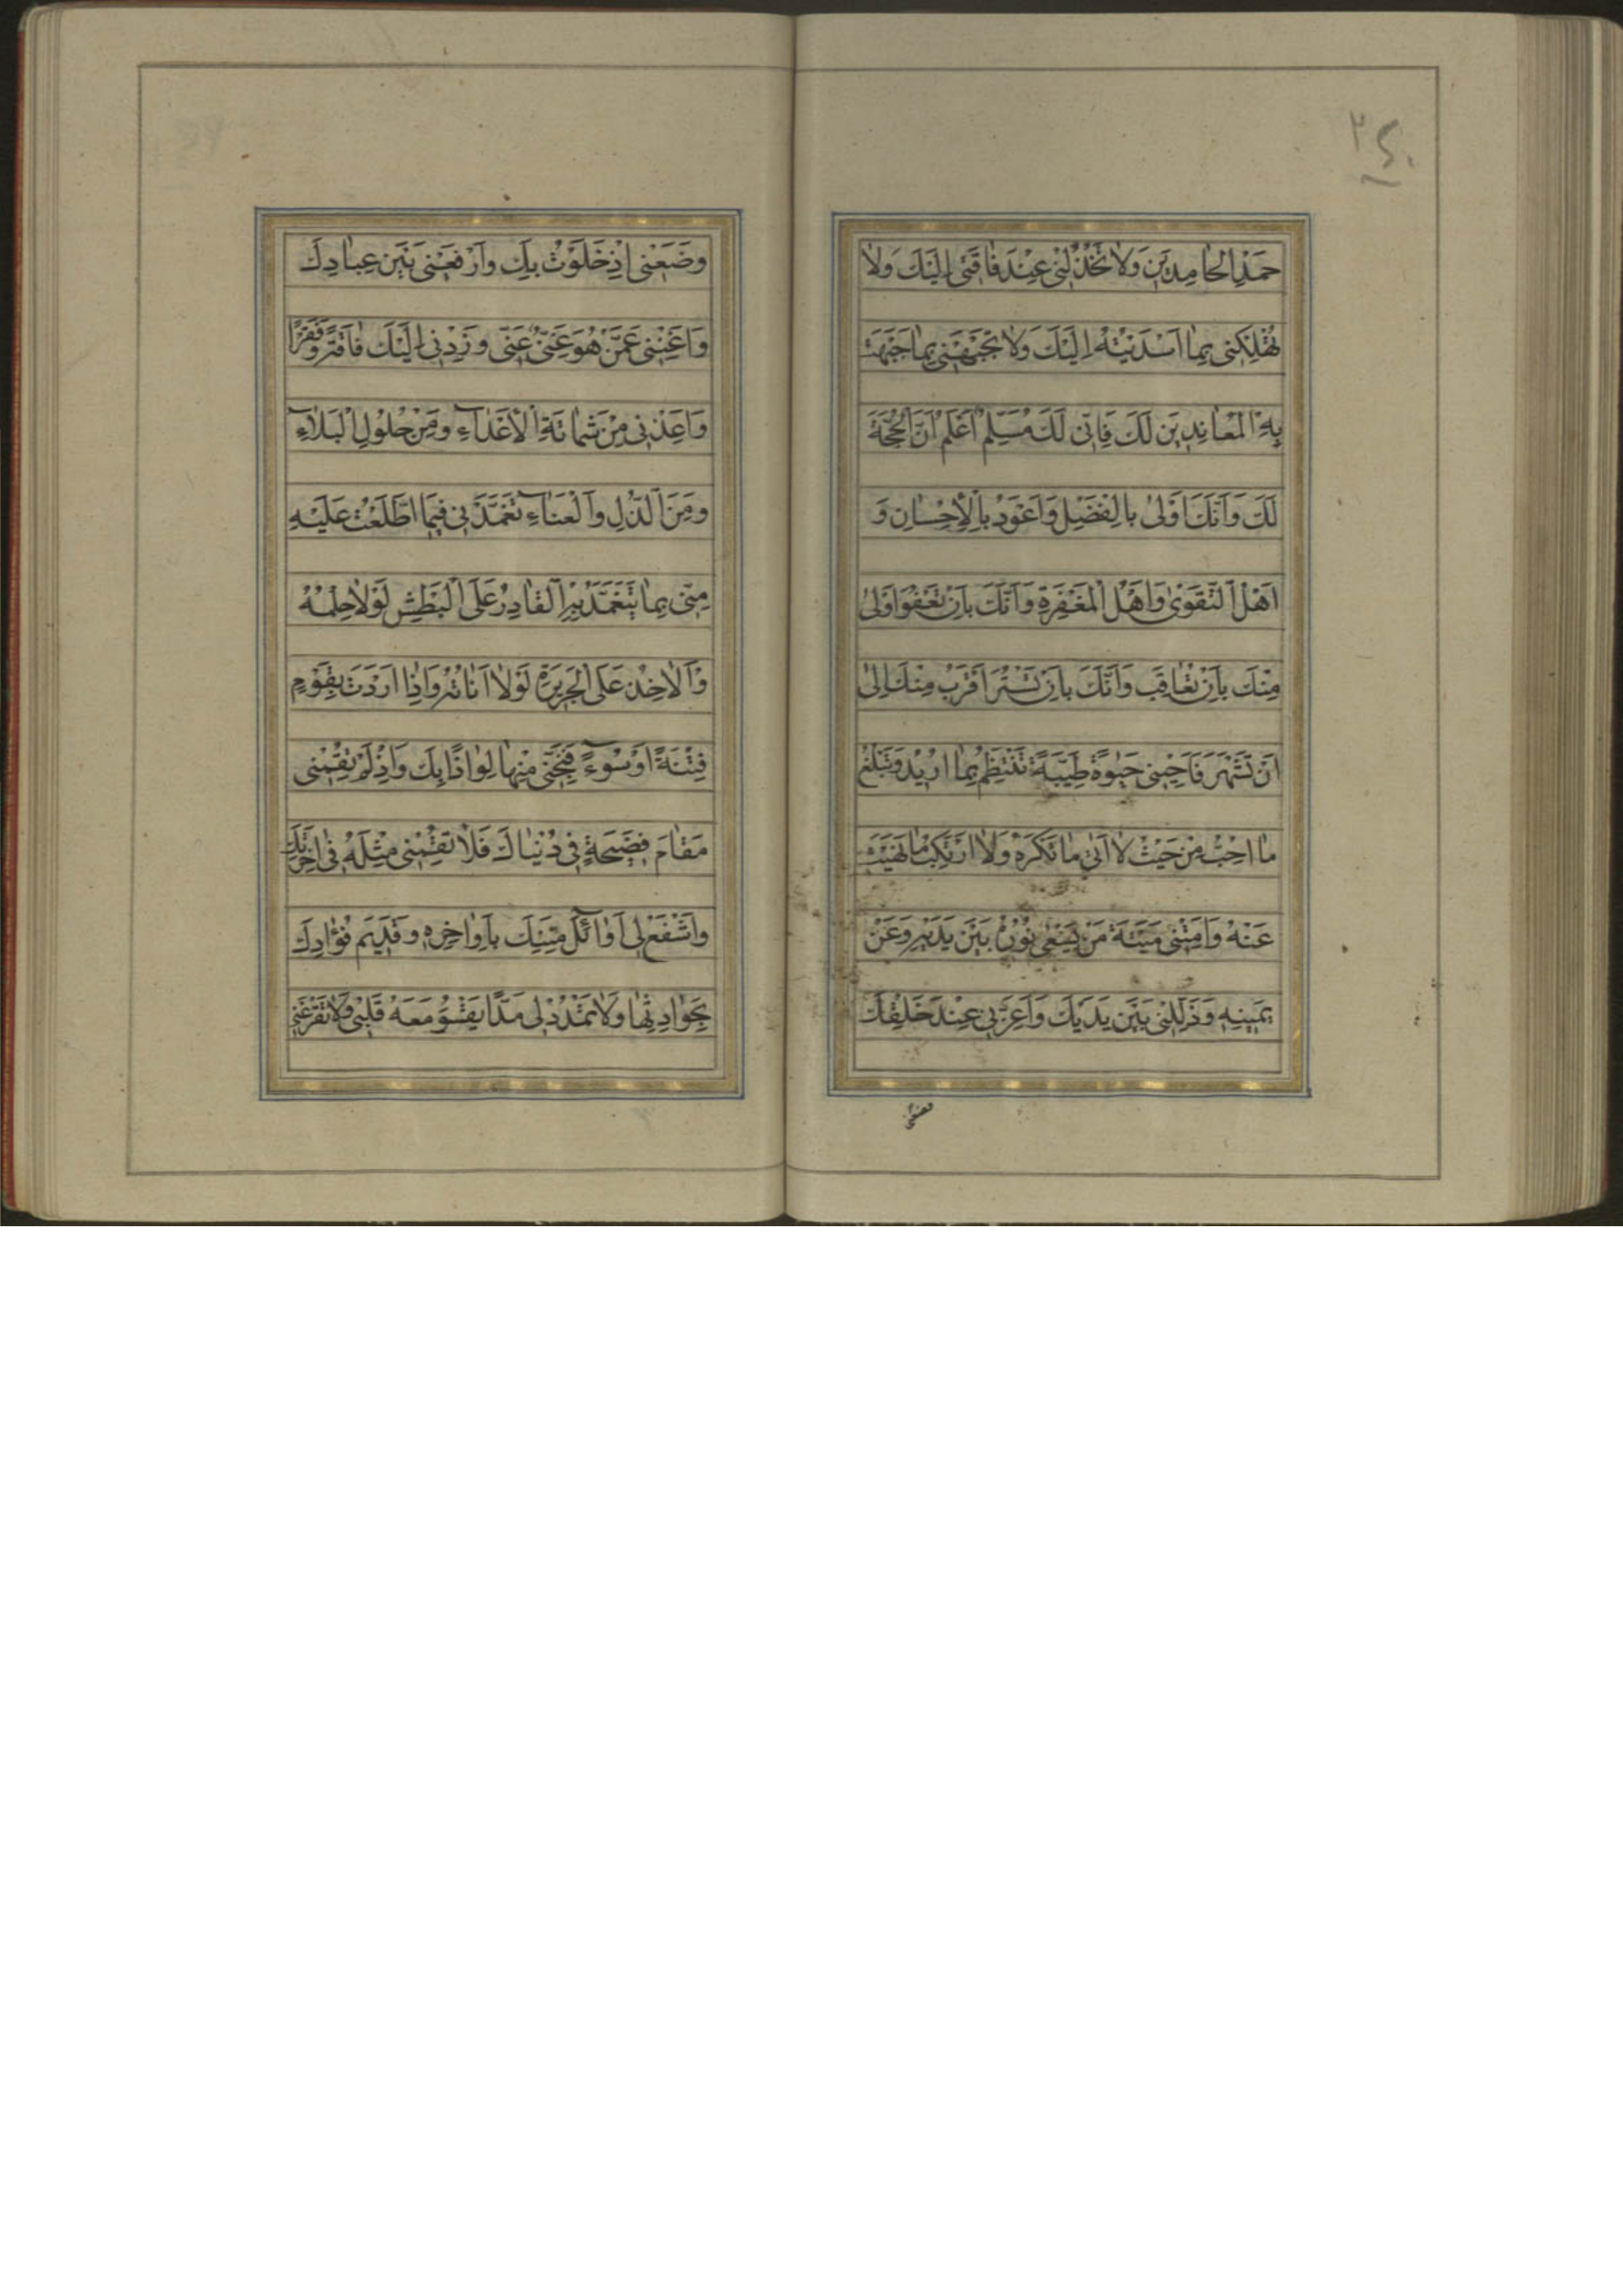 ۲۴۰
حَمْدِ الْحٰامِدينَ وَلاٰ تَخْذُلْنى عِنْدَ فٰاقَتى اِلَيْكَ وَلاٰ
تُهْلِكْنى بِمٰا اَسْدَيْتُهُ اِلَيْكَ وَلاٰ تَجْبَهْنى بِمٰا جَبَهْتَ
بِهِ الْمُعٰانِدينَ لَكَ فَاِنّى لَكَ مُسَلِّمٌ اَعْلَمُ اَنَّ الْحُجَّةَ
لَكَ وَاَنَّكَ اَوْلىٰ بِالْفَضْلِ وَاَعْوَدُ بِالْاِحْسٰانِ وَ
اَهْلُ التَّقْوىٰ وَاَهْلُ الْمَغْفِرَةِ وَاَنَّكَ بِاَنْ تَعْفُوَ اَوْلىٰ
مِنْكَ بِاَنْ تُعٰاقِبَ وَاَنَّكَ بِاَنْ تَسْتُرَ اَقْرَبُ مِنْكَ اِلىٰ
اَنْ تَشْهَرَ فَاَحْيِنى حَيٰوةً طَيِّبَةً تَنْتَظِمُ بِمٰا اُريدُ وَتَبْلُغُ
مٰا اُحِبُّ مِنْ حَيْثُ لاٰ اٰتى مٰا تَكْرَهُ وَلاٰ اَرْتَكِبُ مٰا نَهَيْتَ
عَنْهُ وَاَمِتْنى ميتَةَ مَنْ يَسْعىٰ نُورُهُ بَيْنَ يَدَيْهِ وَعَنْ
يَمينِهِ وَذَلِّلْنى بَيْنَ يَدَيْكَ وَاَعِزَّنى عِنْدَ خَلْقِكَ
وَضَعْنى اِذٰ خَلَوْتُ بِكَ وَارْفَعْنى بَيْنَ عِبٰادِكَ
وَاَغْنِنى عَمَّنْ هُوَ غَنِىٌّ عَنّى وَزِدْنى اِلَيْكَ فٰاقَةً وَفَقْرًا
وَاَعِذْنى مِنْ شَمٰاتَةِ الْاَعْدٰآءِ وَمِنْ حُلُولِ الْبَلاٰءِ
وَمِنَ الذُّلِّ وَالْعَنٰآءِ تَغَمَّدْنى فيمَا اطَّلَعْتَ عَلَيْهِ
مِنّى بِمٰا يَتَغَمَّدُ بِهِ الْقٰادِرُ عَلَى الْبَطْشِ لَوْلاٰ حِلْمُهُ
وَالْاٰخِذُ عَلَى الْجَريرَةِ لَوْلاٰ اَنٰاتُهُ وَاِذٰا اَرَدْتَ بِقَوْمٍ
فِتْنَةً اَوْ سُوٓءً فَنَجِّنى مِنْهٰا لِوٰاذًا بِكَ وَاِذْ لَمْ تُقِمْنى
مَقٰامَ فَضيحَةٍ فى دُنْيٰاكَ فَلاٰ تُقِمْنى مِثْلَهُ فى اٰخِرَتِكَ
وَاشْفَعْ لى اَوٰآئِلَ مِنَنِكَ بِاَوٰاخِرِهٖ وَقَديمَ فُوٰادِكَ
بِحَوٰادِثِهٰا وَلاٰ تَمْدُدْ لى مَدًّا يَقْسُو مَعَهُ قَلْبى وَلاٰ تَقْرَعْنى